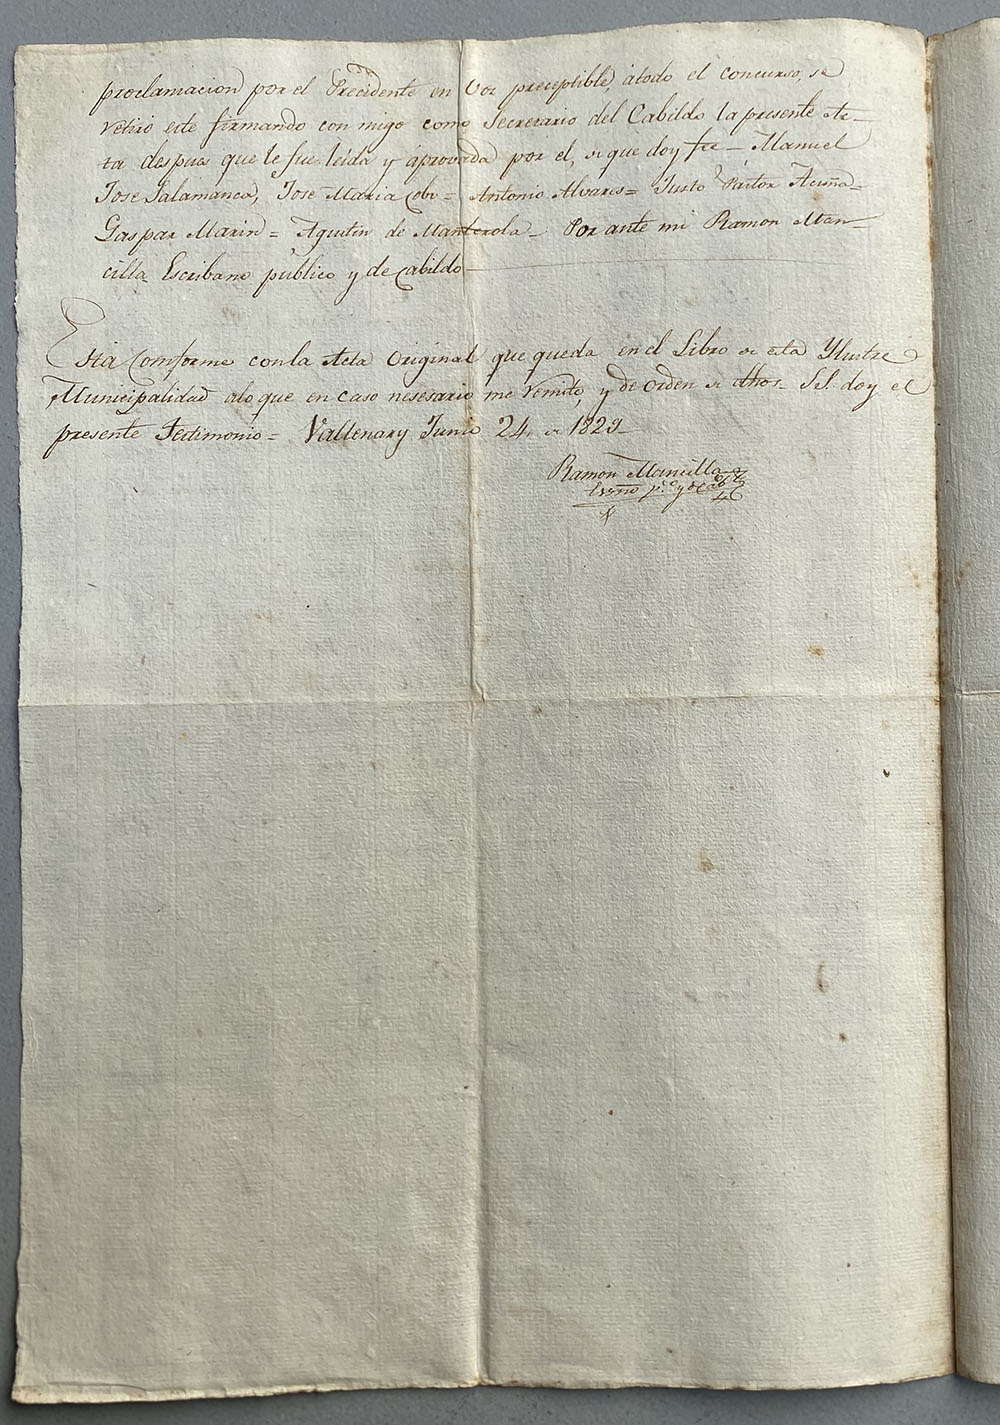 proclamacion por el Precidente en voz preceptible, atodo el concurso, se
retiro este firmando con migo como Secretario del Cabildo la presente Ac-
ta despues que le fue leida y aprovada por el, de que doy fee — Manuel
Jose Salamanca, Jose Maria Cobo = Antonio Alvares = Justo Pastor Acuña =
Gaspar Marin = Agustin de Manterola — Por ante mi Ramon Man-
cilla Escribano publico y de Cabildo
Esta Comforme con la Acta Original que queda en el Libro de esta Ylustre
Municipalidad alo que en caso nesesario me remito, y de orden de dhos. S.S. doy el
presente Testimonio = Vallenar y Junio 24, de 1823
Ramon Mancilla
Essno. pco. y de Cabo.